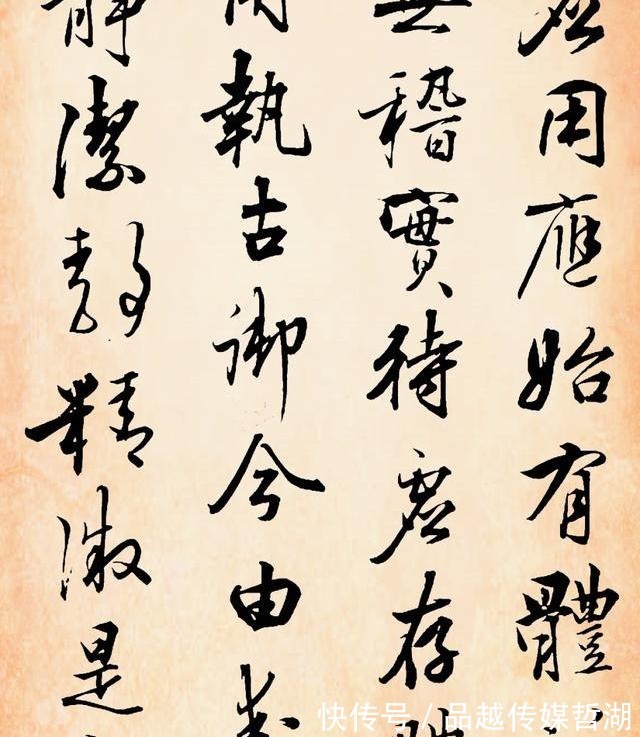 用應始有體
稽實待虛存
執古御今由
潔靜精微是
快传号 / 品越传媒哲湖